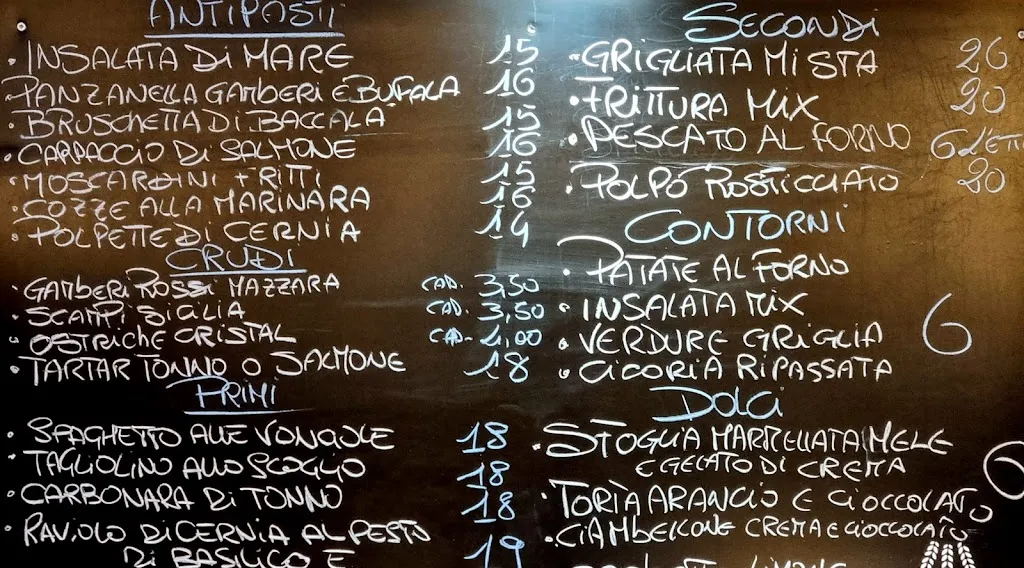 ANTIPASTI
• INSALATA DI MARE 15
PANZANELLA GAMBERI E BUFALA 16
• BRUSCHETTA DI BACCALÀ 15
• CARPACCIO DI SALMONE 16
• MOSCARDINI FRITTI 15
• COZZE ALLA MARINARA 16
• POLPETTE DI CERNIA 14
CRUDI
• GAMBERI ROSSI MAZZARA CAD. 3,50
• SCAMPI SICILIA CAD. 3,50
• OSTRICHE CRISTAL CAD.
• TARTAR TONNO O SALMONE 18
PRIMI
• SPAGHETTO ALLE VONGOLE 18
• TAGLIOLINO ALLO SCOGLIO 18
• CARBONARA DI TONNO 18
• RAVIOLO DI CERNIA AL PESTO 19
DI BASILICO E
SECONDI
• GRIGLIATA MISTA 26
• FRITTURA MIX 20
• PESCATO AL FORNO 6 L'ETT
• POLPO ROSTICCIATO 20
CONTORNI
• PATATE AL FORNO
• INSALATA MIX
• VERDURE GRIGLIA 6
• CICORIA RIPASSATA
DOLCI
• SFOGLIA MARTELLATA MELE
E GELATO DI CREMA
• TORTA ARANCIO E CIOCCOLATO
• CIAMBELLONE CREMA E CIOCCOLATO